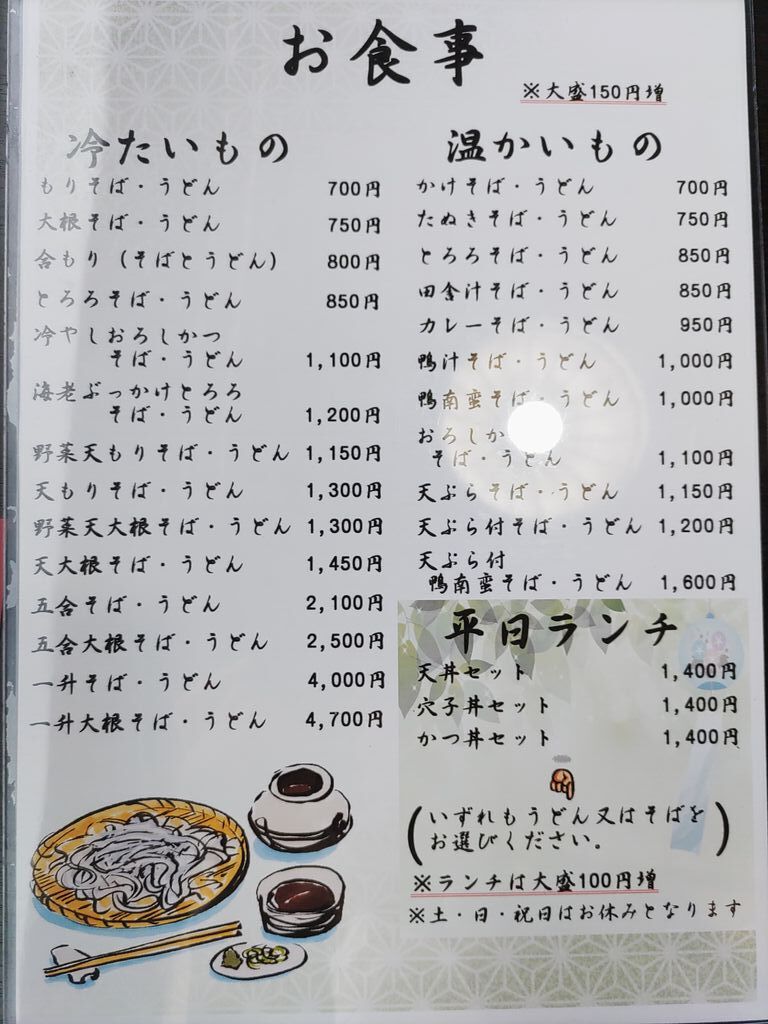 お食事
※大盛150円増
冷たいもの
もりそば・うどん 700円
大根そば・うどん 750円
合もり（そばとうどん） 800円
とろろそば・うどん 850円
冷やしおろしかつ
そば・うどん 1,100円
海老ぶっかけとろろ
そば・うどん 1,200円
野菜天もりそば・うどん 1,150円
天もりそば・うどん 1,300円
野菜天大根そば・うどん 1,300円
天大根そば・うどん 1,450円
五合そば・うどん 2,100円
五合大根そば・うどん 2,500円
一升そば・うどん 4,000円
一升大根そば・うどん 4,700円
温かいもの
かけそば・うどん 700円
たぬきそば・うどん 750円
とろろそば・うどん 850円
田舎汁そば・うどん 850円
カレーそば・うどん 950円
鴨汁そば・うどん 1,000円
鴨南蛮そば・うどん 1,000円
おろしか
そば・うどん 1,100円
天ぷらそば・うどん 1,150円
天ぷら付そば・うどん 1,200円
天ぷら付
鴨南蛮そば・うどん 1,600円
平日ランチ
天丼セット 1,400円
穴子丼セット 1,400円
かつ丼セット 1,400円
（いずれもうどん又はそばを
お選びください。）
※ランチは大盛100円増
※土・日・祝日はお休みとなります